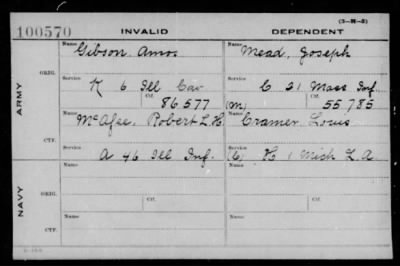 (3-M-5)
100570 INVALID DEPENDENT
Name Gibson, Amos Name Mead, Joseph
ORIG.
Service K 6 Ill Cav Service C 21 Mass Inf.
Ctf. 86577 (M) Ctf. 55,785
ARMY
Name McAfee, Robert L. H. Name Cramer Louis
CTF.
Service A 46 Ill Inf. Service (C) K 1 Mich L. A.
Name Name
ORIG.
Service Ctf. Service Ctf.
NAVY
Name Name
CTF.
Service Service